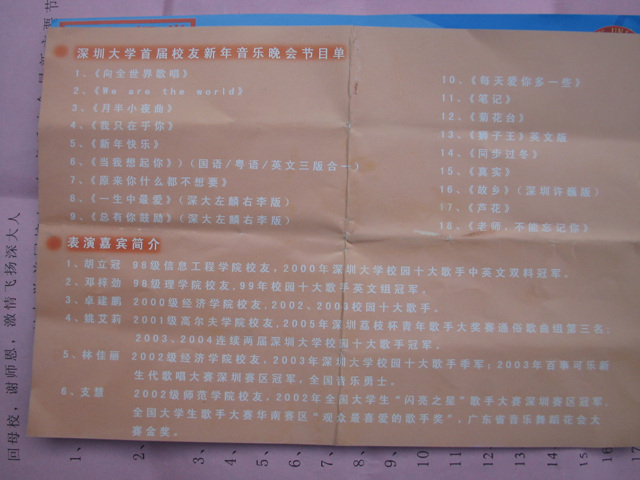 深圳大学首届校友新年音乐晚会节目单
1、《向全世界歌唱》
2、《We are the world》
3、《月半小夜曲》
4、《我只在乎你》
5、《新年快乐》
6、《当我想起你》（国语/粤语/英文三版合一）
7、《原来你什么都不想要》
8、《一生中最爱》（深大左麟右李版）
9、《总有你鼓励》（深大左麟右李版）
10、《每天爱你多一些》
11、《笔记》
12、《菊花台》
13、《狮子王》英文版
14、《同步过冬》
15、《真实》
16、《故乡》（深圳许巍版）
17、《芦花》
18、《老师，不能忘记你》
表演嘉宾简介
1、胡立冠 98级信息工程学院校友，2000年深圳大学校园十大歌手中英文双料冠军。
2、邓梓劲 98级理学院校友，99年校园十大歌手英文组冠军。
3、卓建鹏 2000级经济学院校友，2002、2004校园十大歌手。
4、姚艾莉 2001级高尔夫学院校友，2005年深圳荔枝杯青年歌手大奖赛通俗歌曲组第三名；
2003、2004连续两届深圳大学校园十大歌手冠军。
5、林佳丽 2002级经济学院校友，2003年深圳大学校园十大歌手季军；2003年百事可乐新
生代歌唱大赛深圳赛区冠军，全国音乐勇士。
6、支慧 2002级师范学院校友，2002年全国大学生“闪亮之星”歌手大赛深圳赛区冠军，
全国大学生歌手大赛华南赛区“观众最喜爱的歌手奖”，广东省音乐舞蹈花会大
赛金奖。
回母校，谢师恩，激情飞扬深大人
1、
2、
3、
4、
5、
6、
7、
8、
9、
10
11
12
13
14
15
16
17